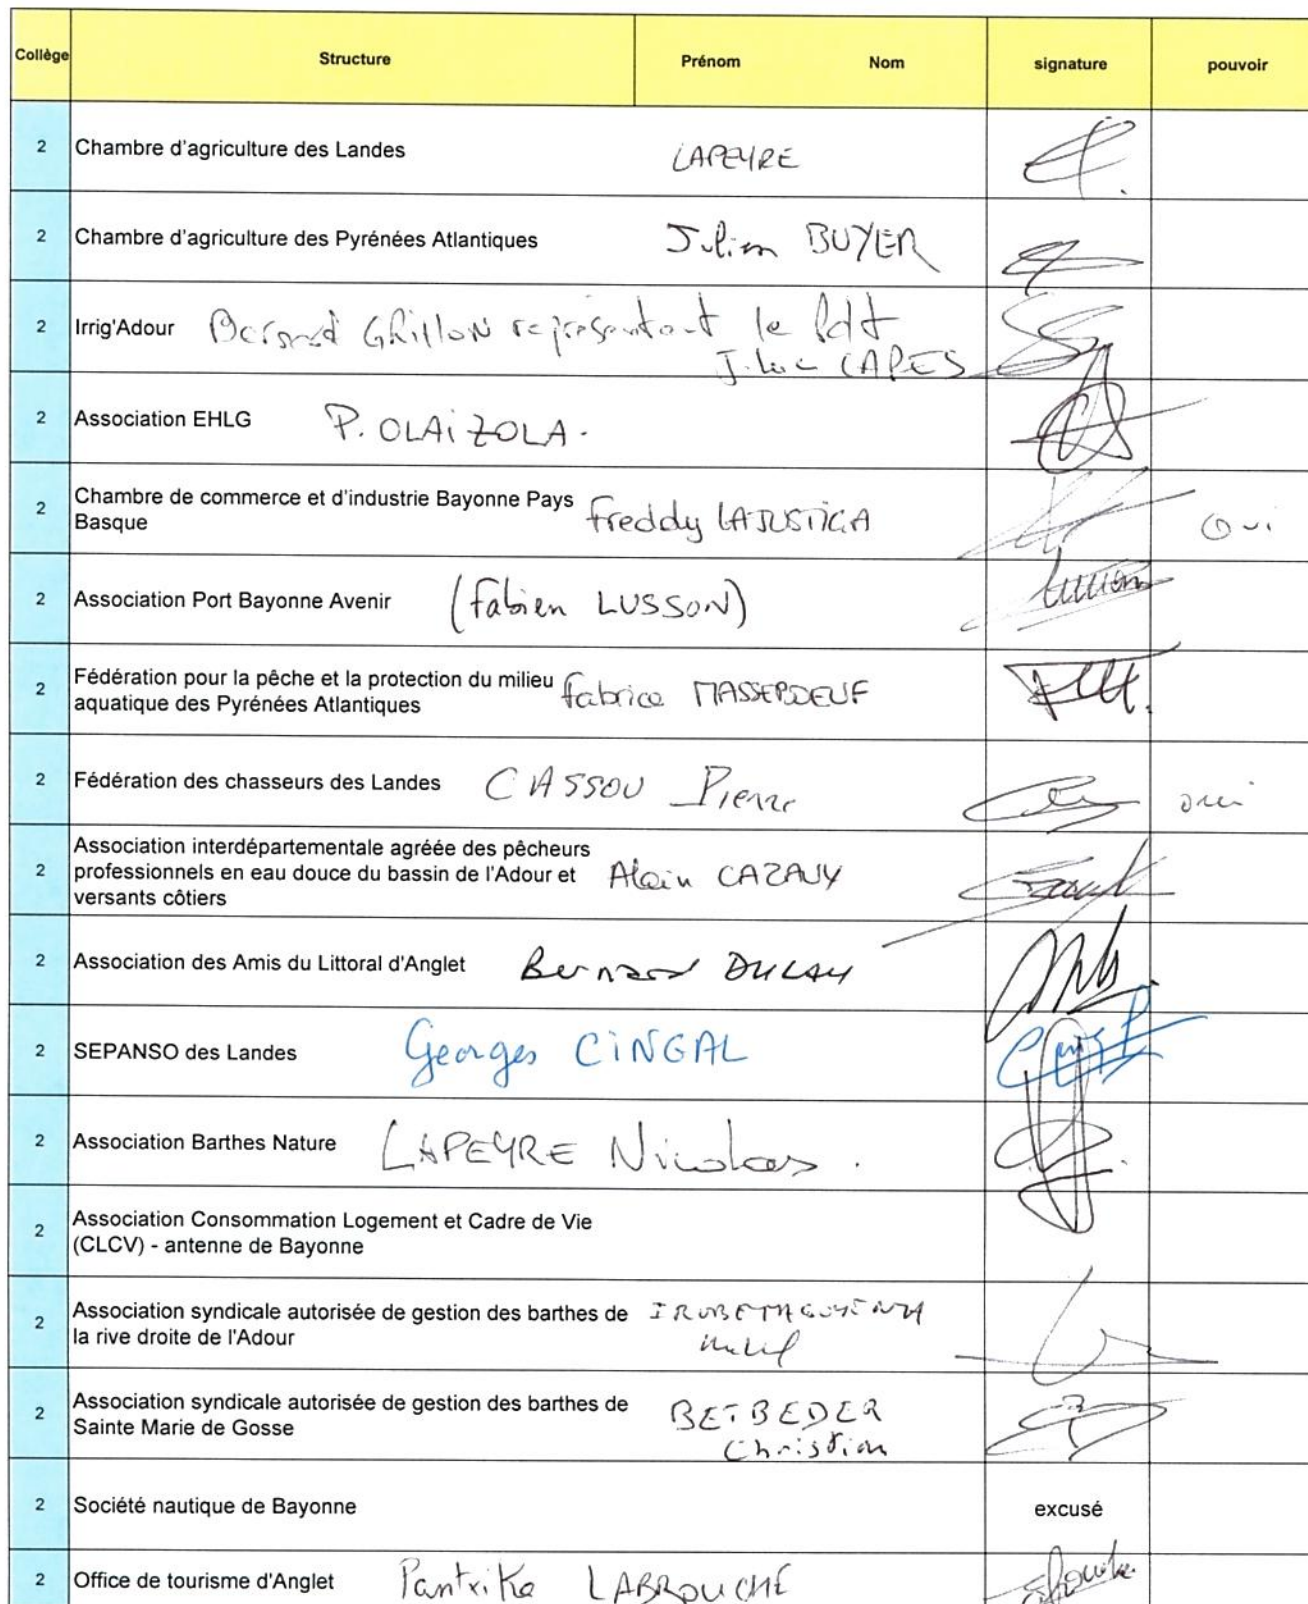 Collège Structure Prénom Nom signature pouvoir
2 Chambre d'agriculture des Landes LAPEYRE
2 Chambre d'agriculture des Pyrénées Atlantiques Julien BUYER
2 Irrig'Adour Bernard GRILLON représentant le Pdt
J. Luc CAPES
2 Association EHLG P. OLAiZOLA.
2 Chambre de commerce et d'industrie Bayonne Pays
Basque Freddy LAJUSTICIA Oui
2 Association Port Bayonne Avenir (Fabien LUSSON)
2 Fédération pour la pêche et la protection du milieu
aquatique des Pyrénées Atlantiques Fabrice MASSEBOEUF
2 Fédération des chasseurs des Landes CASSOU Pierre oui
Association interdépartementale agréée des pêcheurs
2 professionnels en eau douce du bassin de l'Adour et Alain CAZAUX
versants côtiers
2 Association des Amis du Littoral d'Anglet Bernard
2 SEPANSO des Landes Georges CINGAL
2 Association Barthes Nature LAPEYRE Nicolas.
2 Association Consommation Logement et Cadre de Vie
(CLCV) - antenne de Bayonne
2 Association syndicale autorisée de gestion des barthes de
la rive droite de l'Adour
2 Association syndicale autorisée de gestion des barthes de BETBEDER
Sainte Marie de Gosse Christian
2 Société nautique de Bayonne excusé
2 Office de tourisme d'Anglet Pantxika LABROUCHE